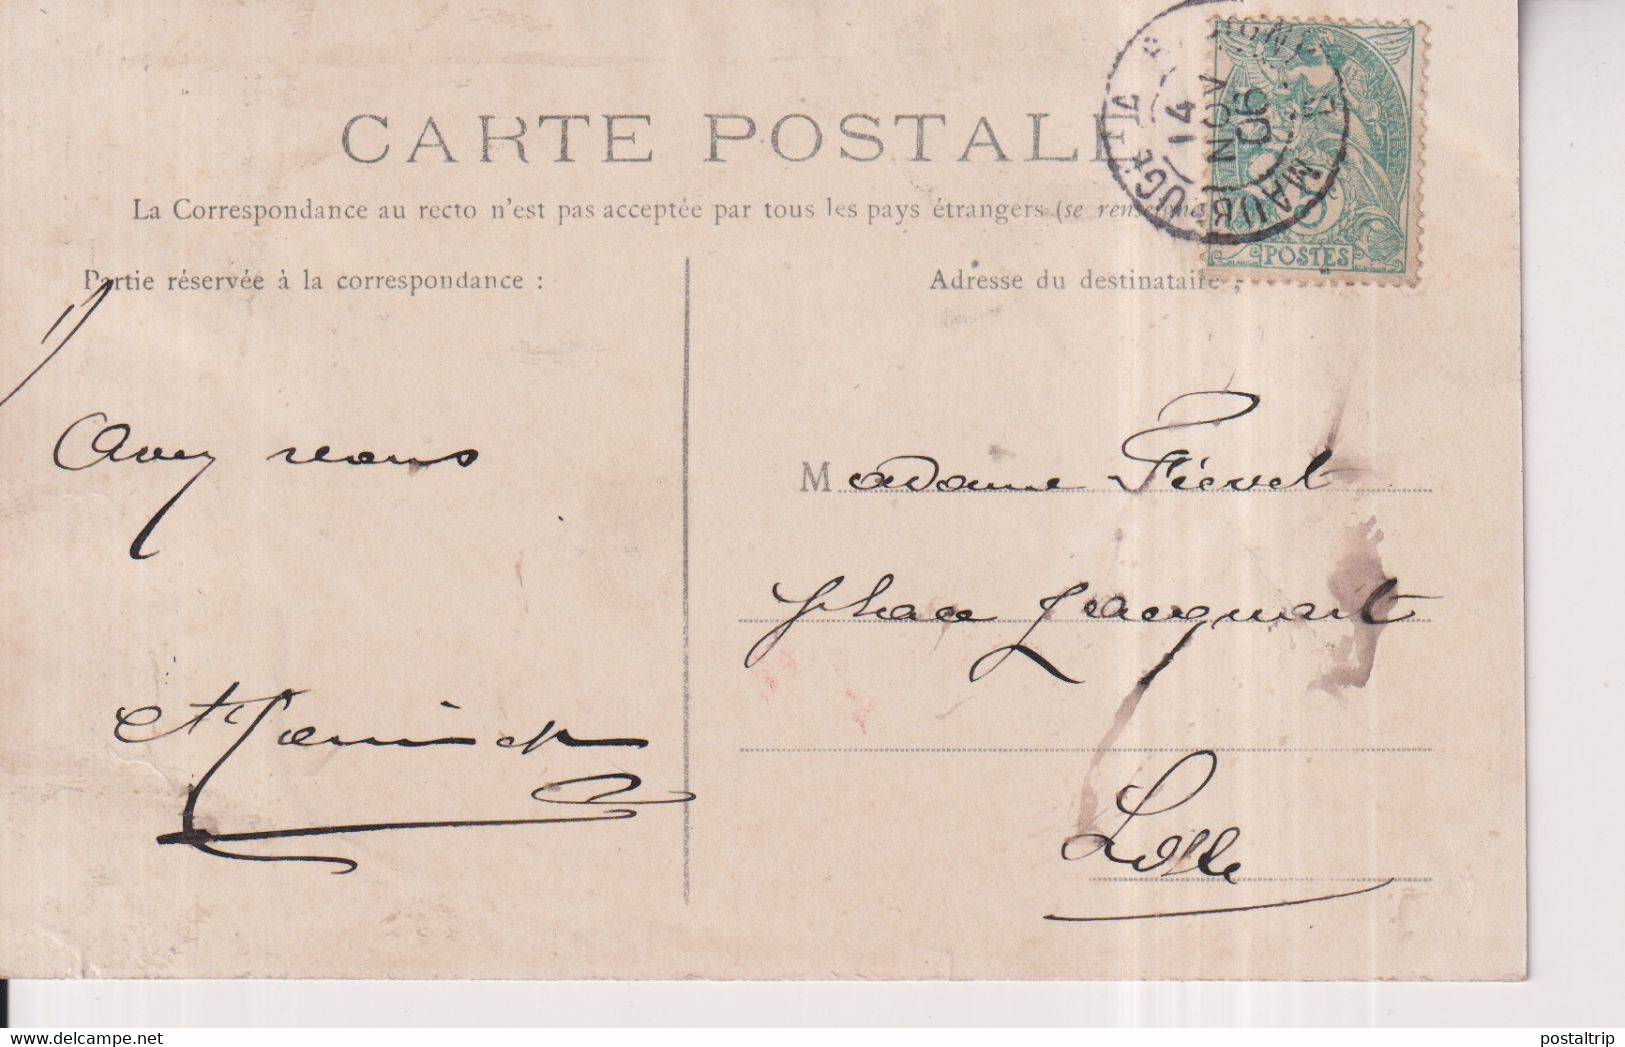 CARTE POSTALE
La Correspondance au recto n'est pas acceptée par tous les pays étrangers (se renseigne
Partie réservée à la correspondance :
Adresse du destinataire
MAUBEUGE
14
NOV
06
POSTES
Madame Fiévet
place Jacquart
Lille
postaltrip